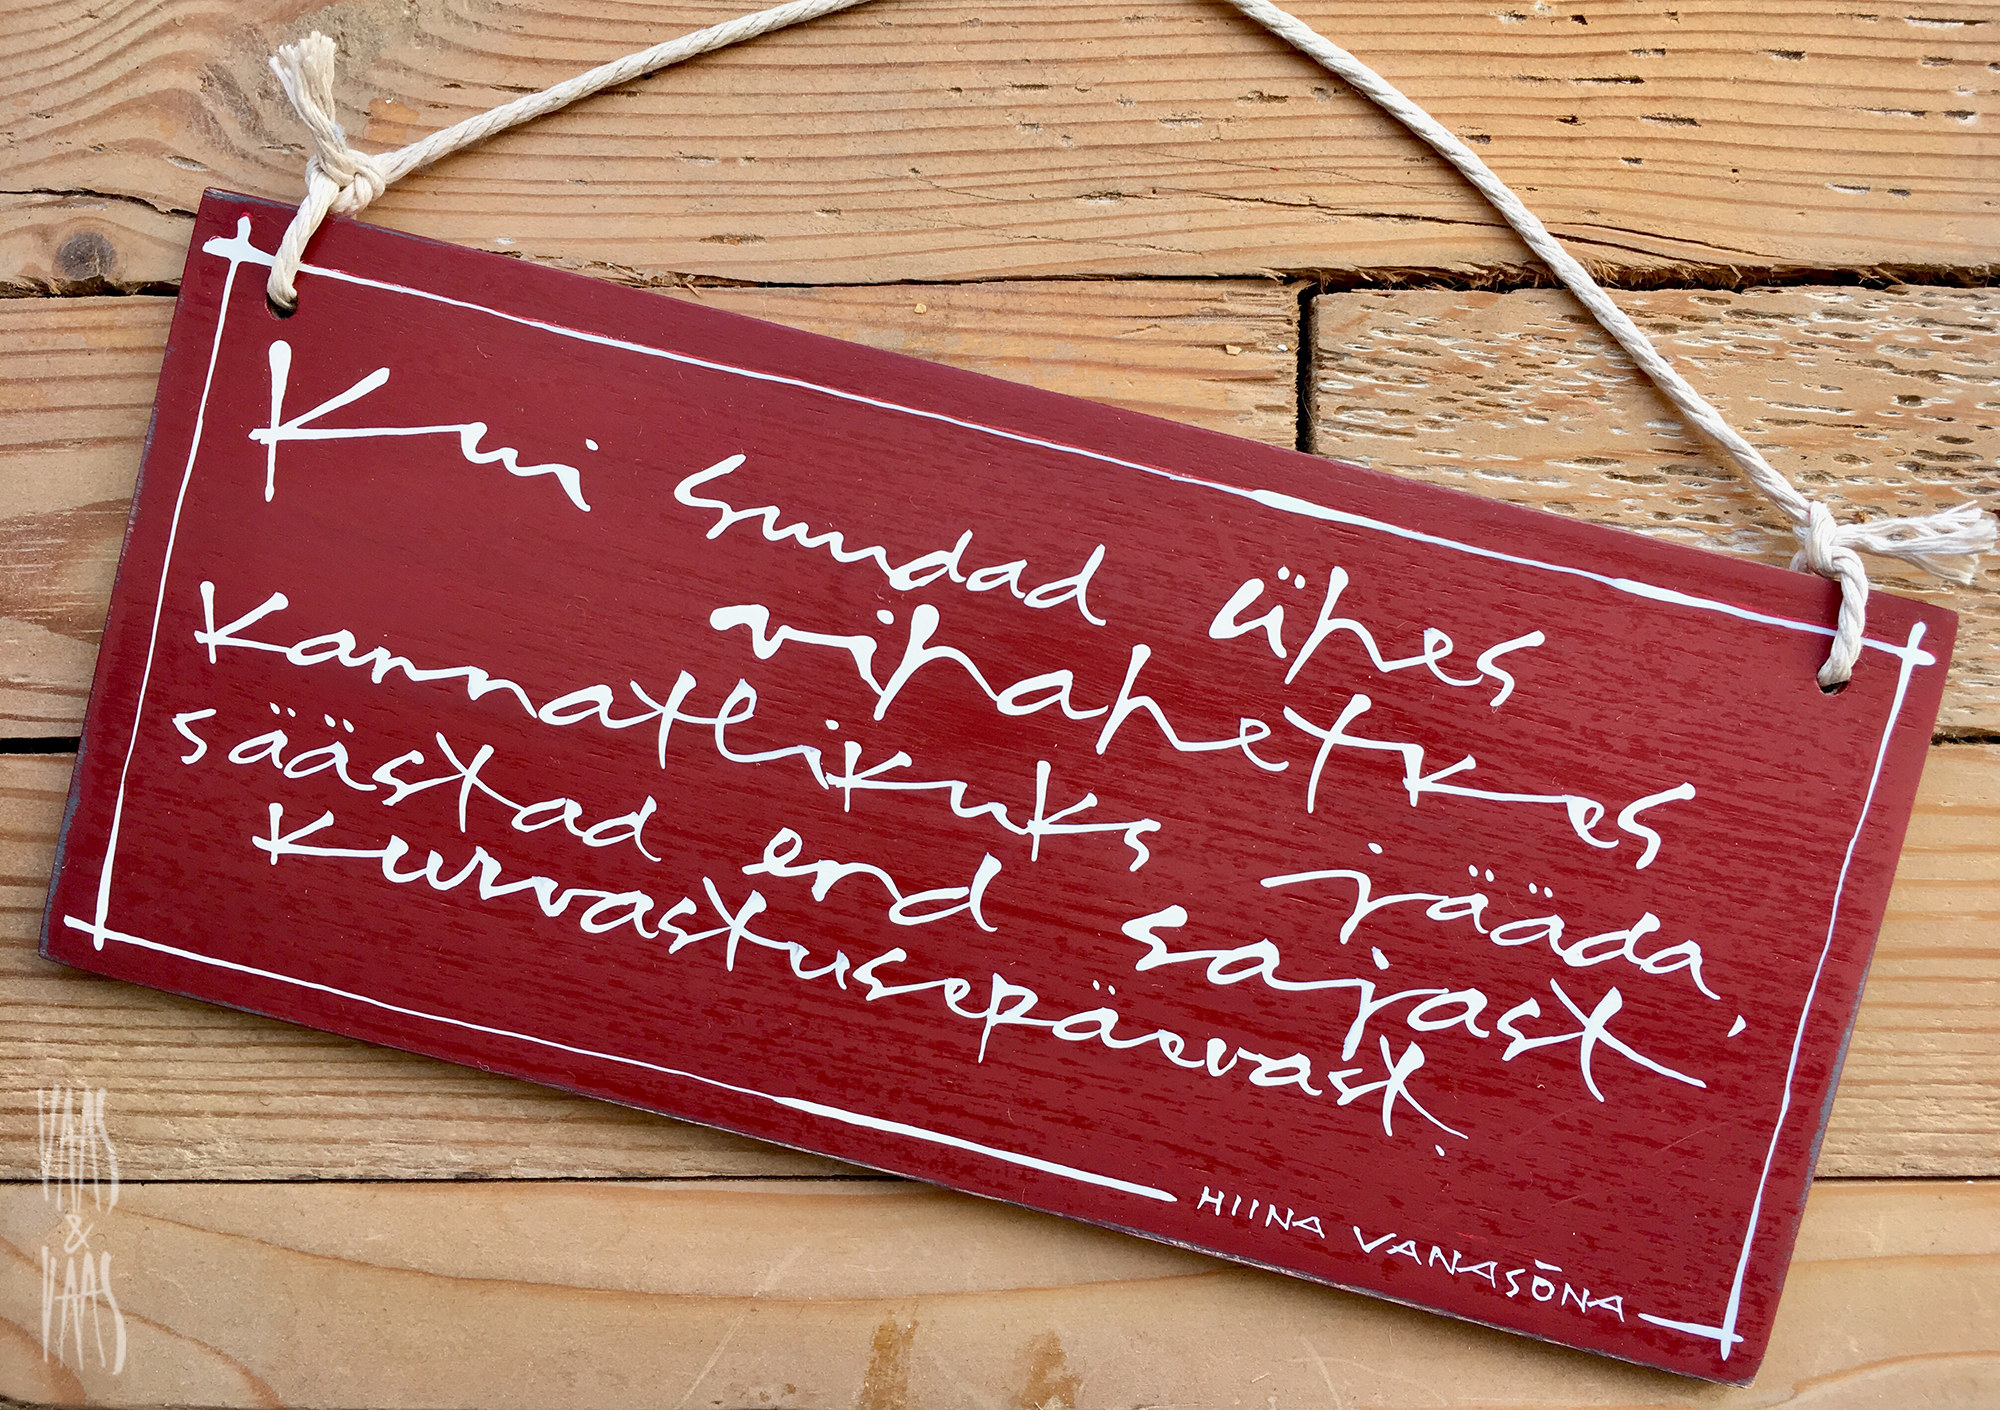 Kui suudad ühes
vihahetkes
kannatlikuks jääda,
säästad end sajast
kurvastusepäevast.
HIINA VANASÕNA
VAAS
&
VAAS